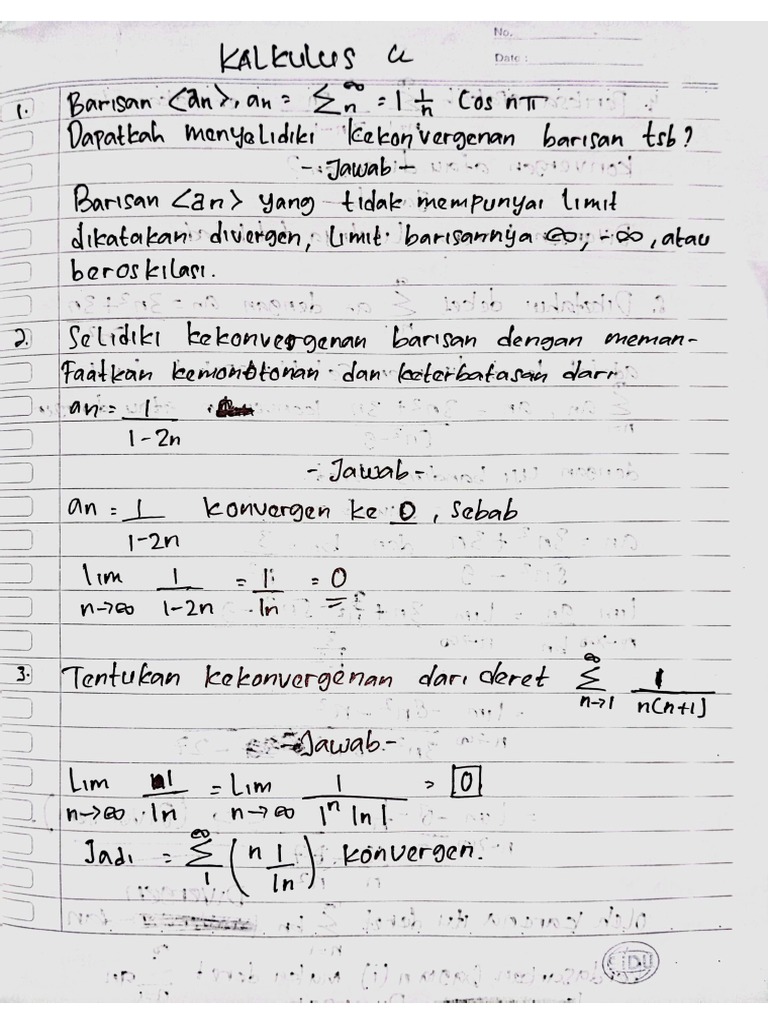 No.
KALKULUS
Date :
1. Barisan <an>, an = ∑ n^∞ = 1 1/n Cos nπ
Dapatkah menyelidiki kekonvergenan barisan tsb?
- Jawab -
Barisan <an> yang tidak mempunyai limit
dikatakan divergen, limit barisannya ∞, -∞, atau
beroskilasi.
2. Selidiki kekonvergenan barisan dengan meman-
faatkan kemonotonan dan keterbatasan dari
an = 1/(1-2n)
- Jawab -
an = 1/(1-2n) konvergen ke 0, sebab
lim n→∞ 1/(1-2n) = 1/ln = 0
3. Tentukan kekonvergenan dari deret ∑ n→1 ^∞ 1/(n(n+1)
- Jawab -
Lim n→∞ 1/ln = Lim n→∞ 1/(1^n |n|) = 0
Jadi = ∑ 1 ^∞ (n 1/ln) konvergen.